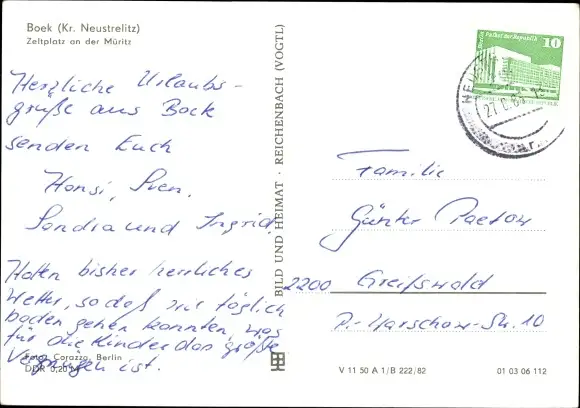 Boek (Kr. Neustrelitz)
Zeltplatz an der Müritz
Herzliche Urlaubs-
grüße aus Boek
senden Euch
Hansi, Sven,
Sandra und Ingrid.
Hatten bisher herrliches
Wetter, so daß wir täglich
baden gehen konnten, was
für die Kinder das größte
Vergnügen ist.
Foto: Corazza, Berlin
DDR 0,20 M
BILD UND HEIMAT · REICHENBACH (VOGTL)
Berlin Palast der Republik
10
27.
Familie
Günter Paetow
2200 Greifswald
P.-Warschow-Str. 10
V 11 50 A 1/B 222/82
01 03 06 112